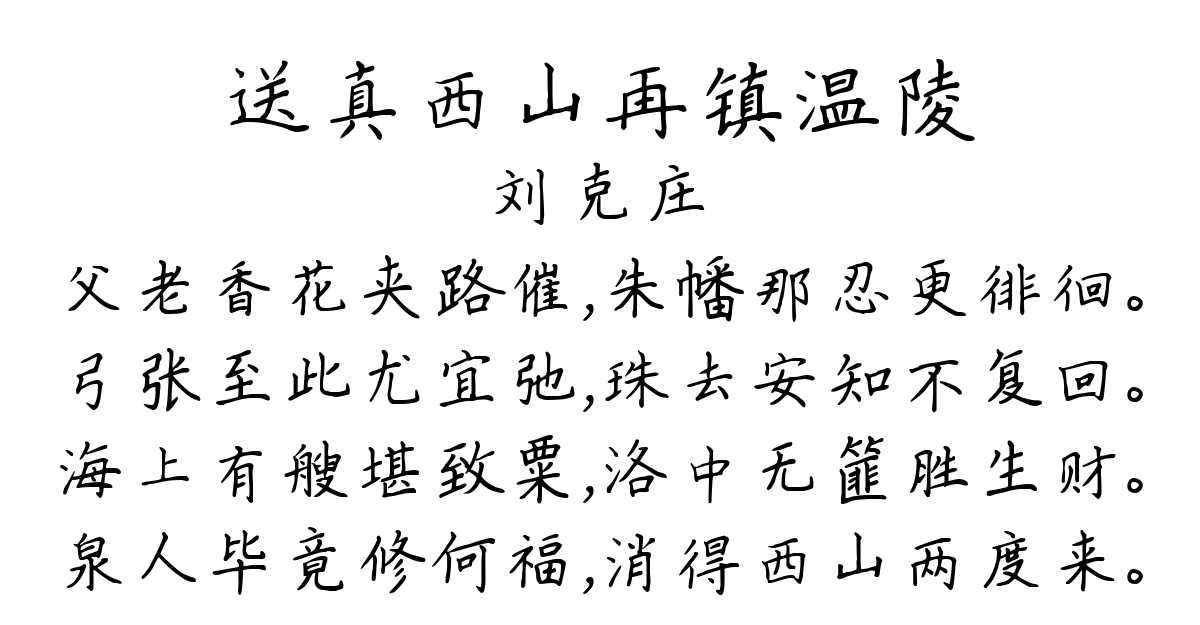 送真西山再镇温陵
刘克庄
父老香花夹路催,朱幡那忍更徘徊。
弓张至此尤宜弛,珠去安知不复回。
海上有艘堪致粟,洛中无篚胜生财。
泉人毕竟修何福,消得西山两度来。